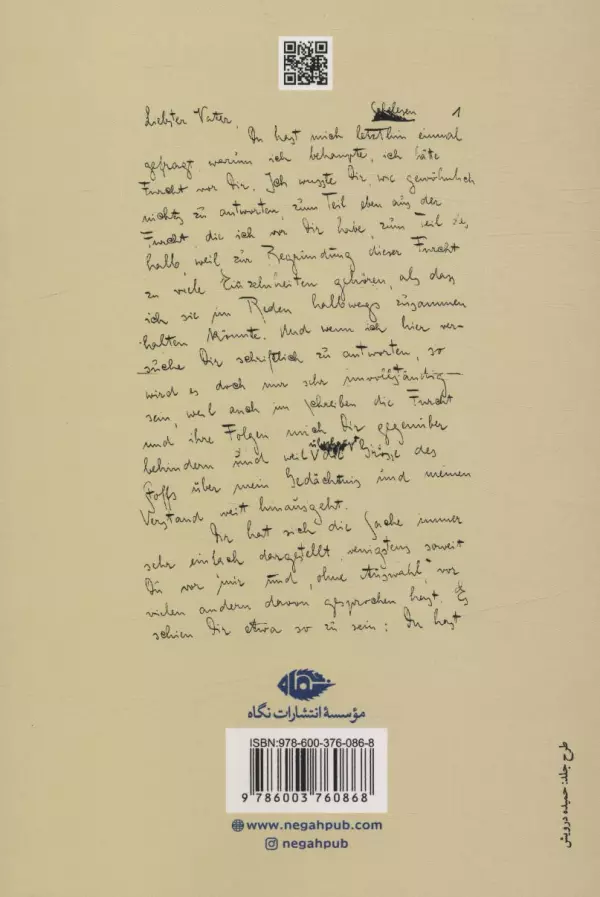 Liebster Vater, Schelesen 1
Du hast mich letzthin einmal
gefragt, warum ich behaupte, ich hätte
Furcht vor Dir. Ich wusste Dir, wie gewöhnlich
nichts zu antworten, zum Teil eben aus der
Furcht, die ich vor Dir habe, zum Teil des
halb, weil zur Begründung dieser Furcht
zu viele Einzelnheiten gehören, als dass
ich sie im Reden halbwegs zusammen
halten könnte. Und wenn ich hier ver-
suche Dir schriftlich zu antworten, so
wird es doch nur sehr unvollständig
sein, weil auch im Schreiben die Furcht
und ihre Folgen mich Dir gegenüber
behindern und weil die Grösse des
Stoffs über mein Gedächtnis und meinen
Verstand weit hinausgeht.
Dir hat sich die Sache immer
sehr einfach dargestellt, wenigstens soweit
Du vor mir und, ohne Auswahl, vor
vielen andern davon gesprochen hast. Es
schien Dir etwa so zu sein: Du hast
مؤسسهٔ انتشارات نگاه
ISBN:978-600-376-086-8
9 786003 760868
www.negahpub.com
negahpub
طرح جلد: حمیده درویش